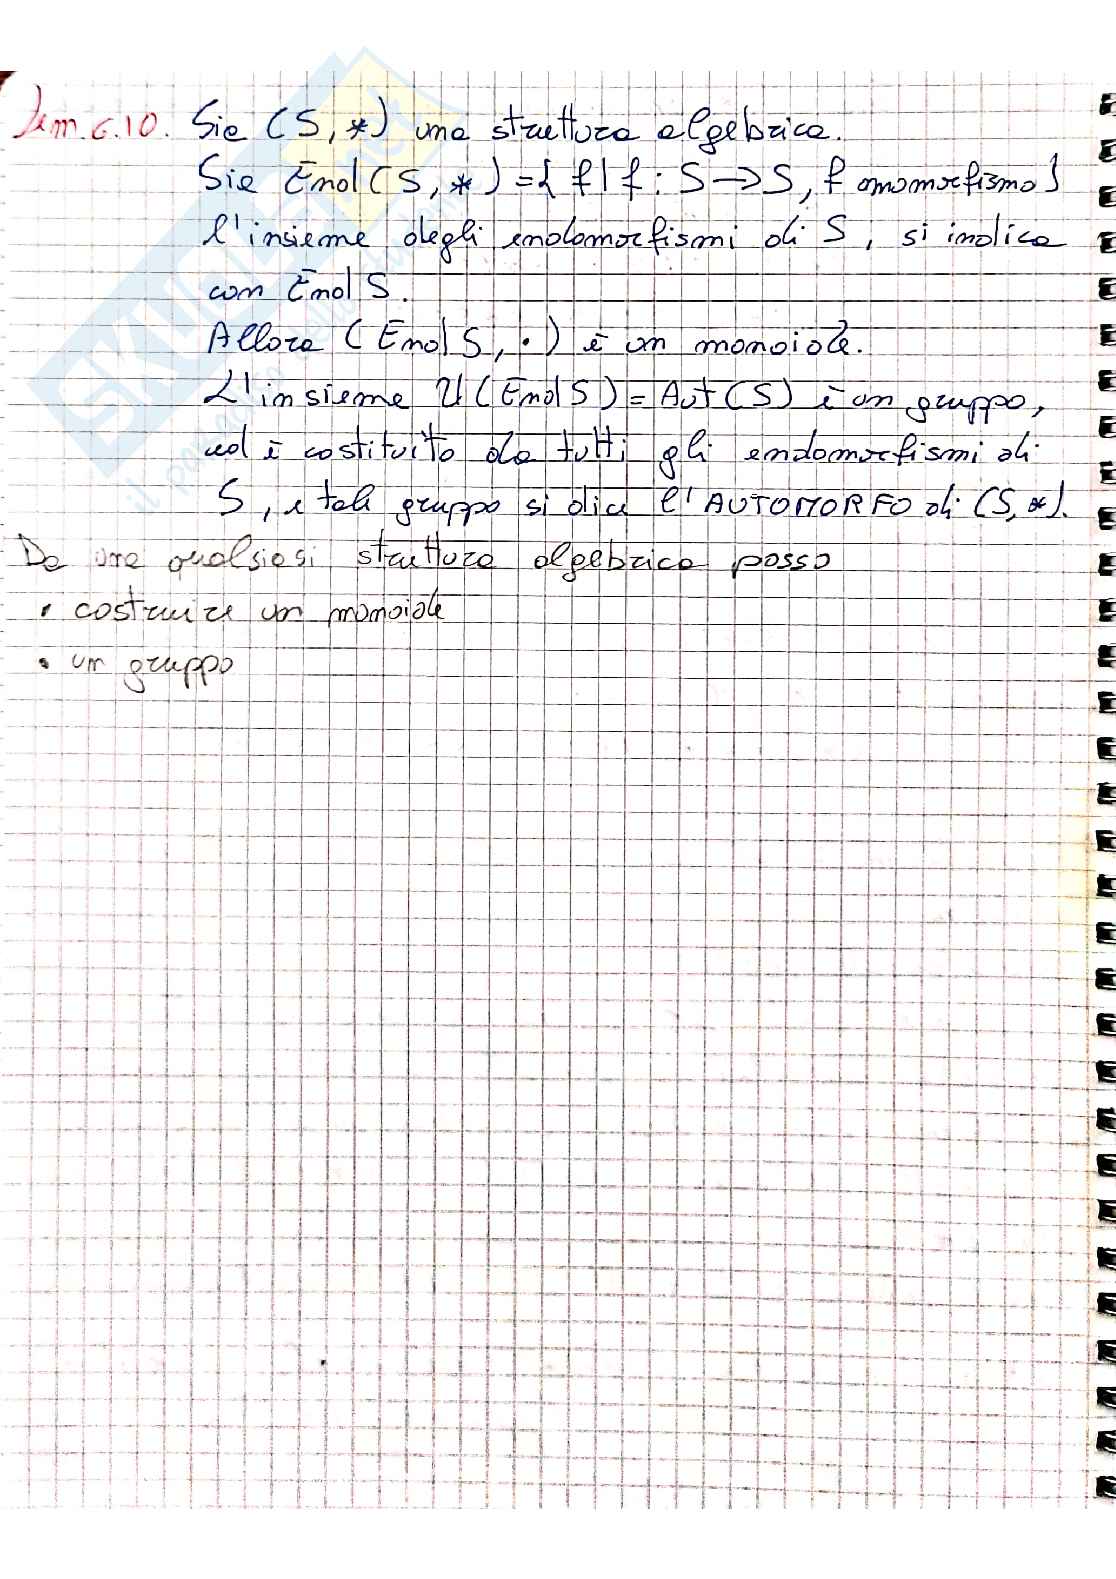 Lem. 6.10. Sia (S, *) una struttura algebrica.
Sia End(S, *) = { f | f : S → S, f omomorfismo }
l'insieme degli endomorfismi di S, si indica
con End S.
Allora (End S, •) è un monoide.
L'insieme U(End S) = Aut(S) è un gruppo,
ed è costituito da tutti gli endomorfismi di
S, e tale gruppo si dice l'AUTOMORFO di (S, *).
Da una qualsiasi struttura algebrica posso
• costruire un monoide
• un gruppo
SKUOLA.net